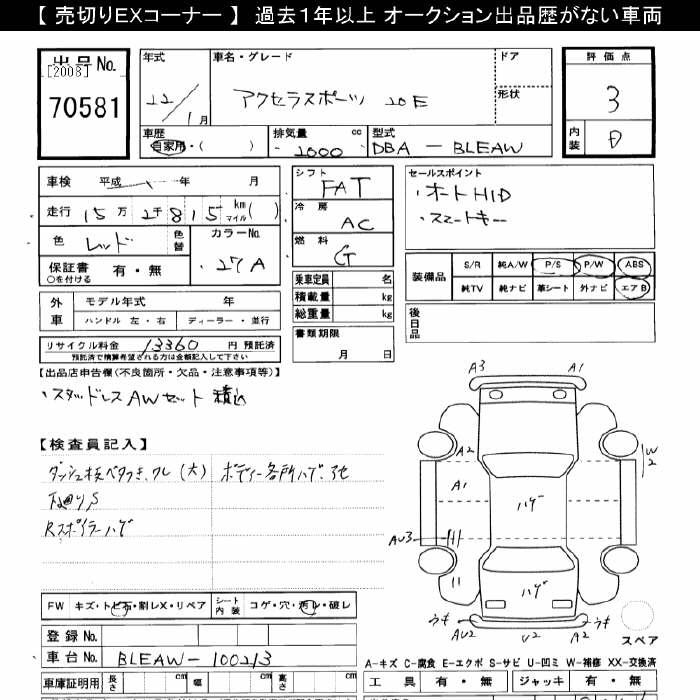 【 売切りEXコーナー 】 過去1年以上 オークション出品歴がない車両
出品No.
[2008]
70581
年式
22/1月
車名・グレード
アクセラスポーツ 20E
ドア
形状
評価点
3
内装
D
車歴
自家用・( )
排気量 cc
2000
型式
DBA - BLEAW
車検 平成 年 月
走行 15万 2千815 km マイル( )
色 レッド 色替
カラーNo.
27A
保証書 有・無
○を付ける
シフト
FAT
冷房
AC
燃料
G
セールスポイント
・オートHID
・スマートキー
装備品
S/R 純A/W P/S P/W ABS
純TV 純ナビ 革シート 外ナビ エアB
外車
モデル年式 年
ハンドル 左・右 ディーラー・並行
乗車定員 名
積載量 kg
総重量 kg
後日品
書類期限
月 日
リサイクル料金 13360 円 預託済
預託済で精算希望される方は金額記入して下さい
【出品店申告欄(不良箇所・欠品・注意事項等)】
・スタッドレスAWセット 積込
【検査員記入】
ダッシュ板ベタつき、ワレ(大) ボディー各所ハゲ、他
下廻りS
Rスポイラーハゲ
A3 A1
A2 W2
A1
ハゲ
AU3
ハゲ
ウキ ウキ
AU2 U2 A2
スペア
FW キズ・トビ石・割レX・リペア シート内装 コゲ・穴・汚レ・破レ
登録No.
車台No. BLEAW-100213
車庫証明用 長さ cm 幅 cm 高さ cm
A-キズ C-腐食 E-エクボ S-サビ U-凹ミ W-補修 XX-交換済
工具 有・無 ジャッキ 有・無